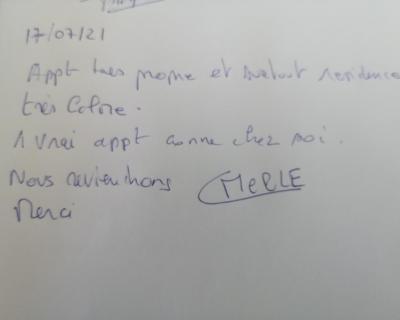 17/07/21
Appt tres propre et surtout residence
très Calme.
1 vrai appt comme chez moi.
Nous reviendrons MERLE
Merci